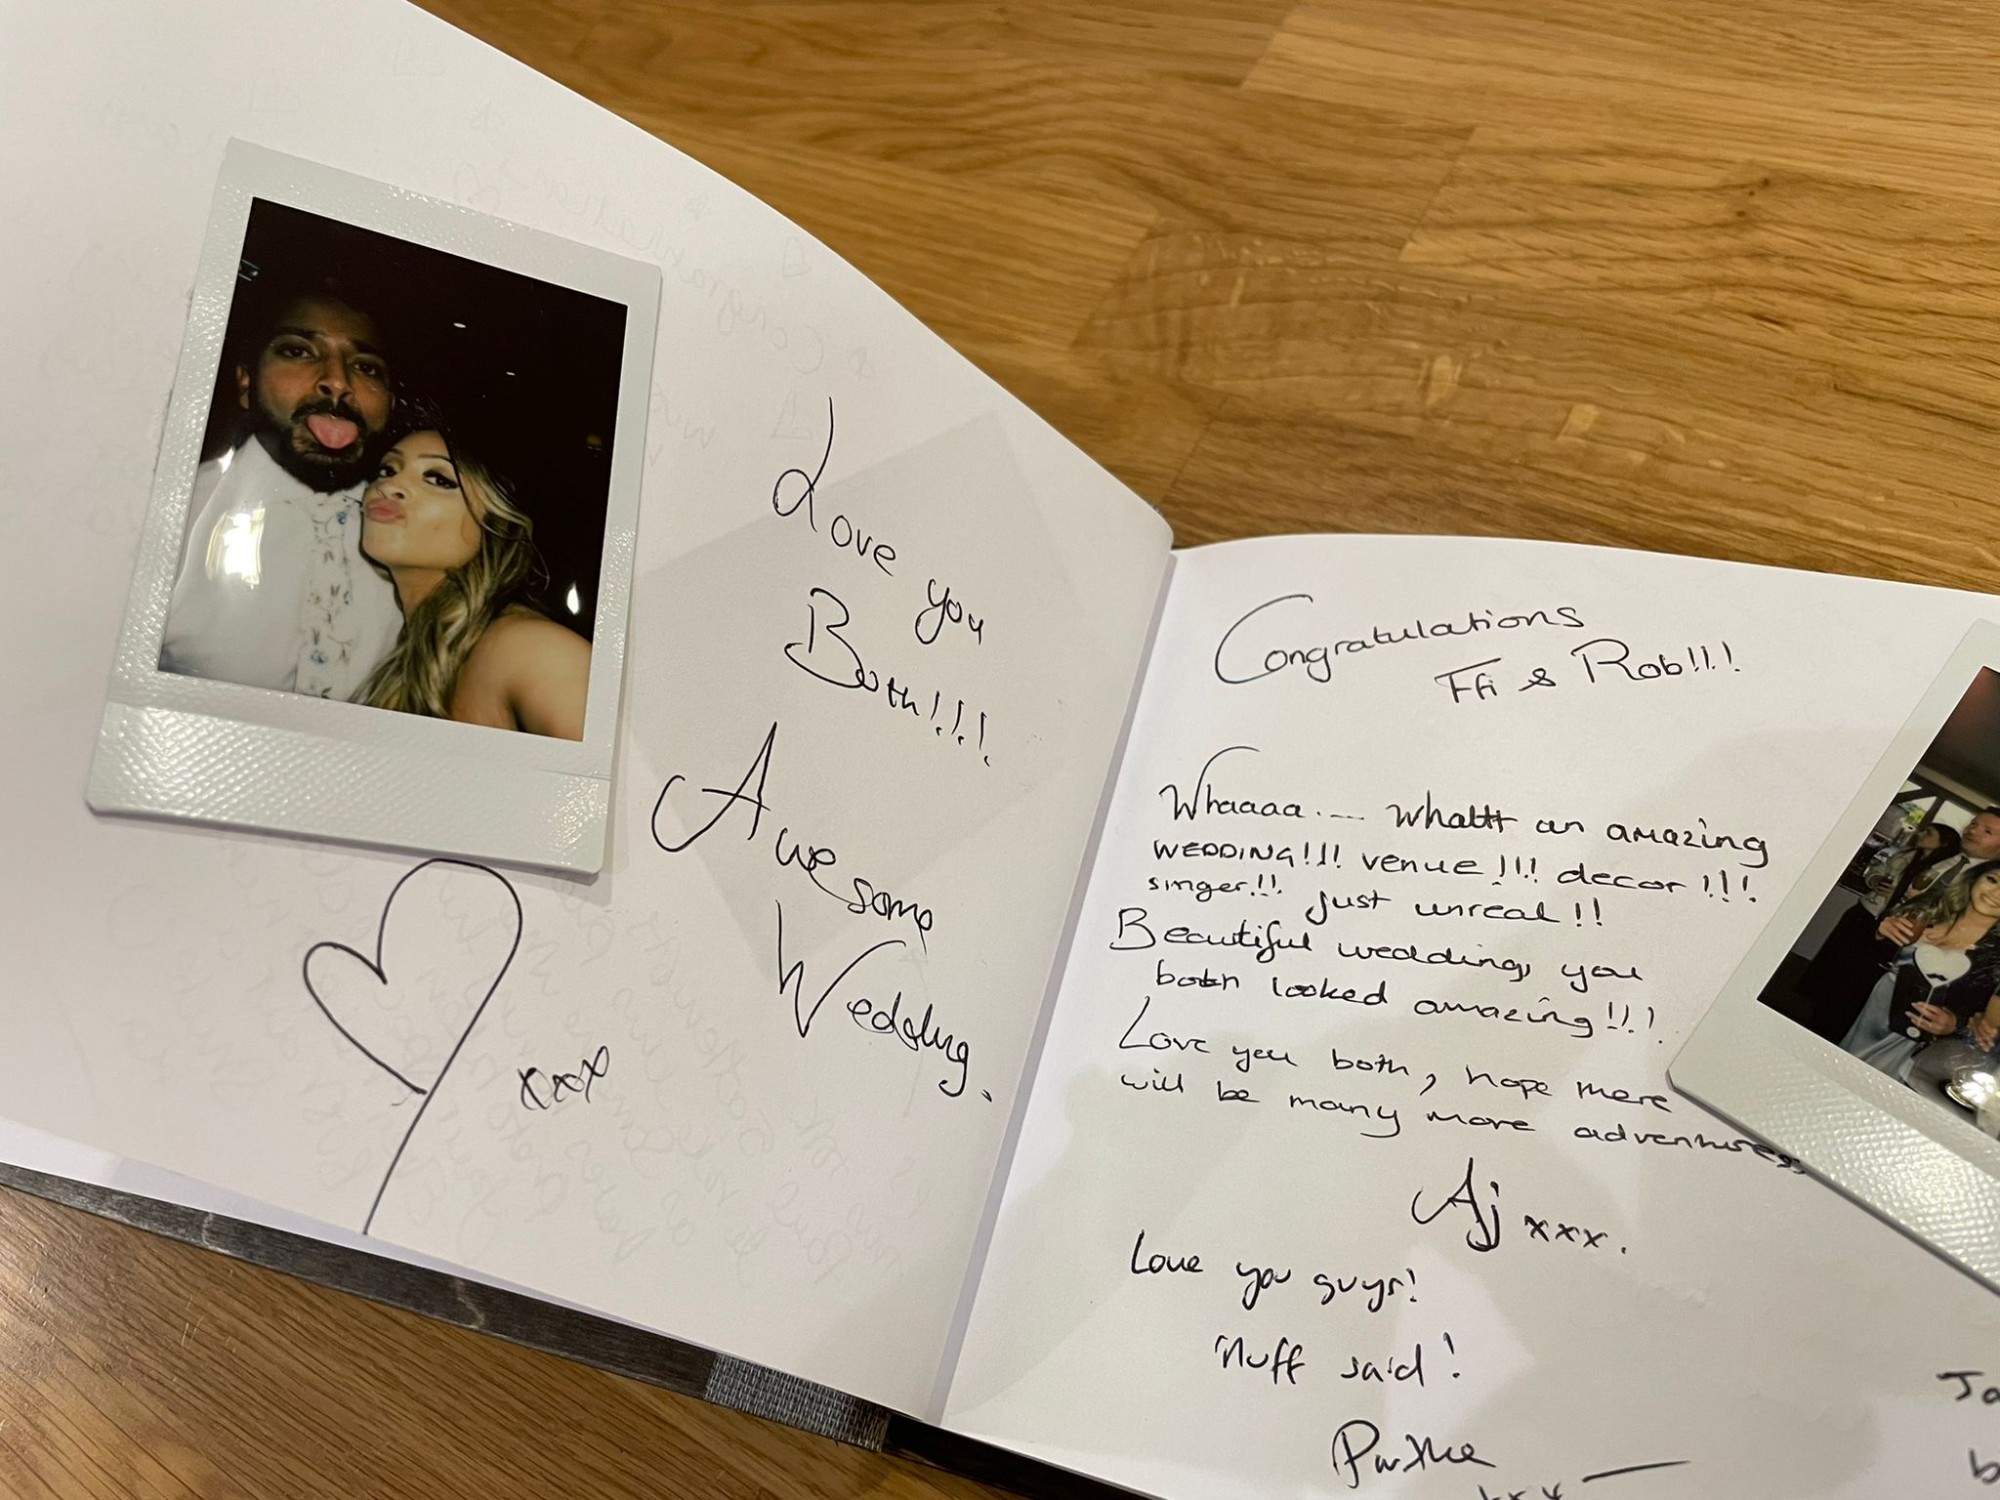 Love you
Both!!!
Awesome
Wedding.
xxox
Congratulations
Ffi & Rob!!!
Whaaaa.... Whattt an amazing
WEDDING!!! venue!!! decor!!!
singer!!! just unreal!!
Beautiful wedding, you
both looked amazing!!!
Love you both, hope there
will be many more adventures
Aj xxx.
Love you guys!
'Nuff said!
xxx